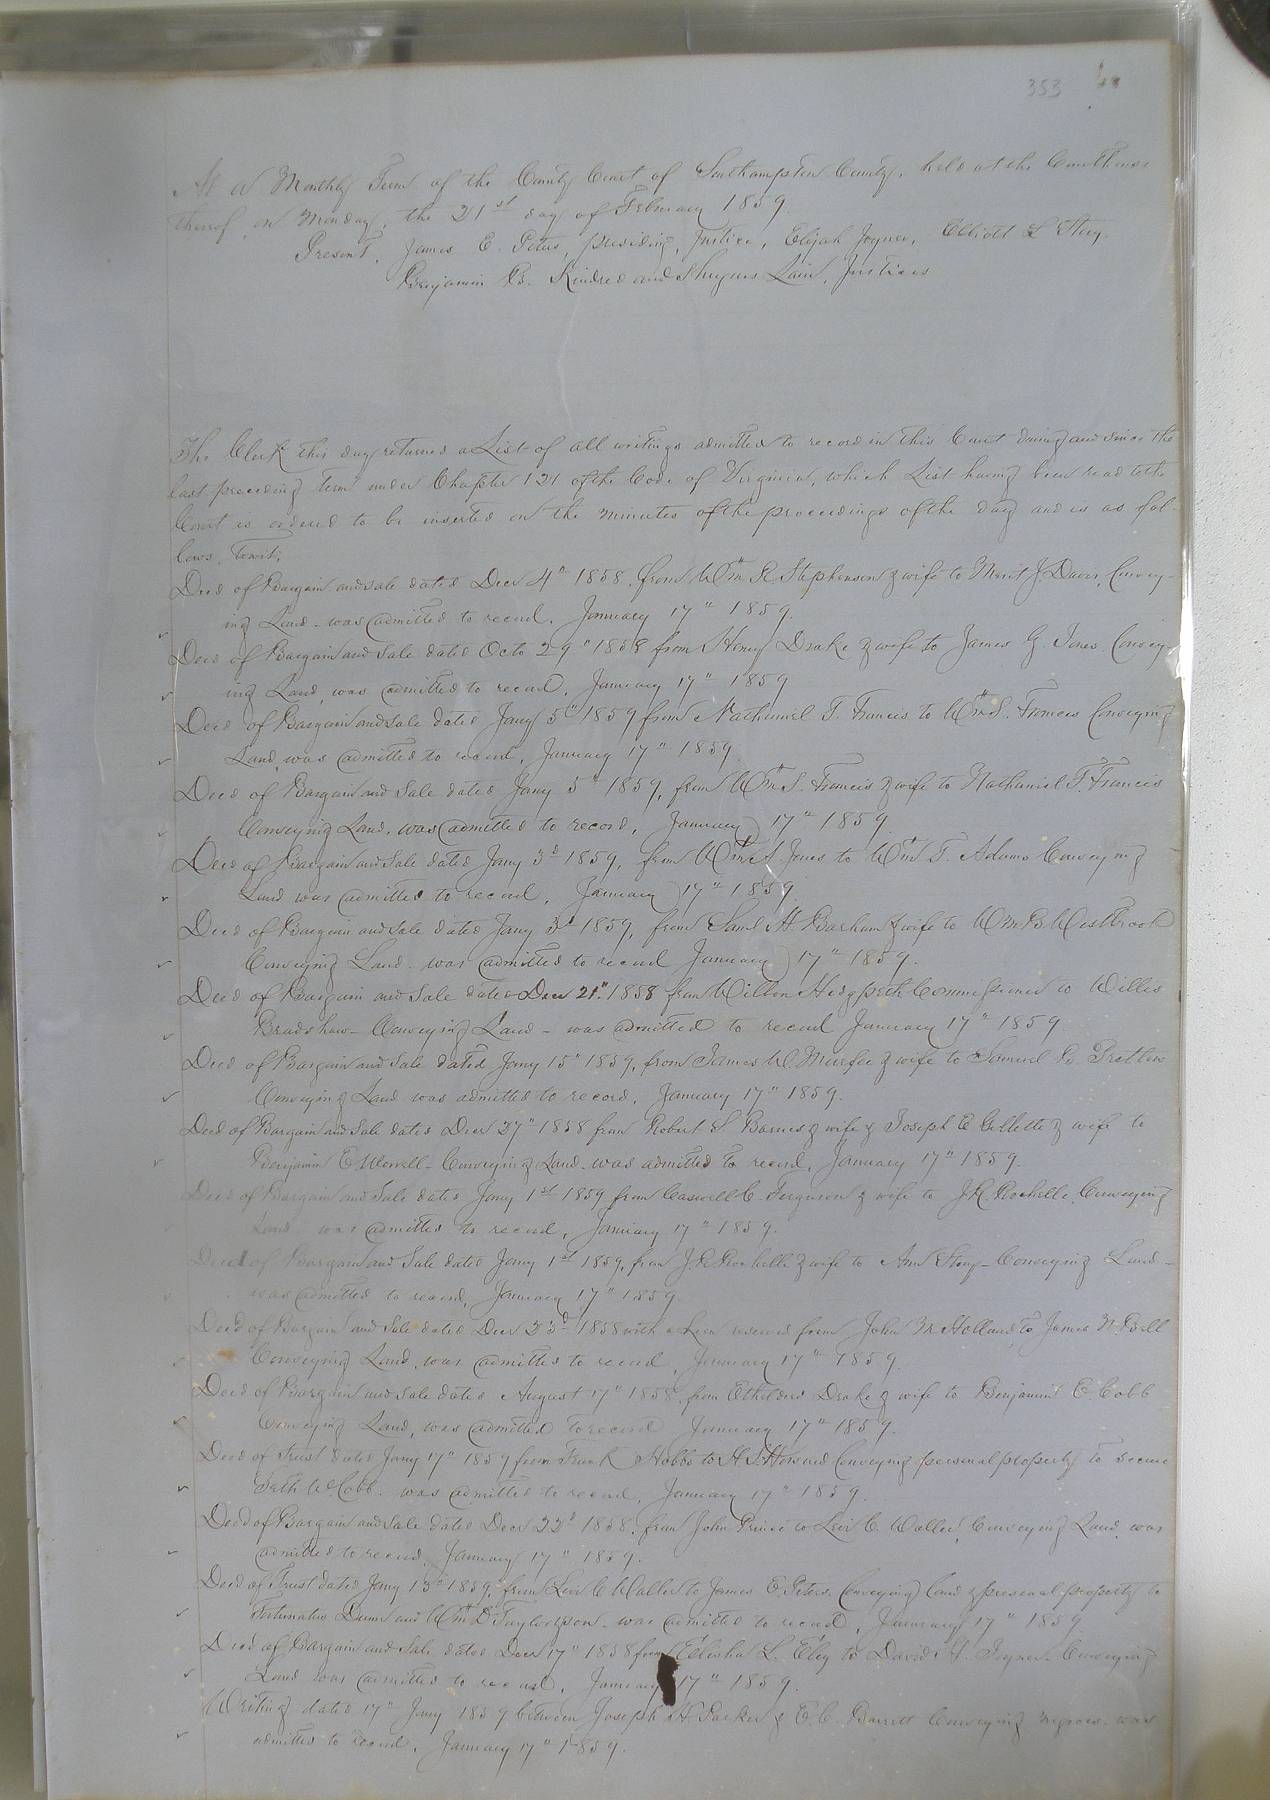 353
At a Monthly Term of the County Court of Southampton County, held at the Courthouse
thereof, on Monday, the 21st day of February 1859.
Present, James E. Peters, presiding, Justice, Elijah Joyner, Elliott L Story.
Benjamin B. Kindred and Lain, Justices
The Clerk this day returned a List of all writings admitted to record in this Court during and since the
last preceding term under Chapter 121 of the Code of Virginia, which List having been read to the
Court is ordered to be inserted on the minutes of the proceedings of the day and is as fol-
lows, Towit;
Deed of Bargain and sale dated Decr 4th 1858, from Wm R Stephenson & wife to Merit J. Davis, Convey-
ing Land - was admitted to record, January 17" 1859.
Deed of Bargain and Sale dated Octo 29" 1858 from Henry Drake & wife to James G. Jones Convey-
ing Land, was admitted to record, January 17" 1859
Deed of Bargain and sale dated Jany 5" 1859 from Nathaniel T. Francis to Wm S. Francis Conveying
Land, was admitted to record, January 17" 1859.
Deed of Bargain and Sale dated Jany 5" 1859, from Wm S. Francis & wife to Nathaniel T. Francis
Conveying Land, was admitted to record, January 17" 1859.
Deed of Bargain and Sale dated Jany 3d 1859, from Wm Jones to Wm T. Adams Conveying
Land was admitted to record, January 17" 1859.
Deed of Bargain and sale dated Jany 3d 1859, from Saml H. Barham & wife to Wm B. Westbrook
Conveying Land - was admitted to record January 17" 1859.
Deed of Bargain and Sale dated Decr 21st 1858 from Hedgpeth Commissioner to Willis
Bradshaw - Conveying Land - was admitted to record January 17" 1859
Deed of Bargain and Sale dated Jany 15" 1859, from James W. Murfee & wife to Samuel Pretlow
Conveying Land was admitted to record, January 17" 1859.
Deed of Bargain and Sale dated Decr 27" 1858 from Robert S Barnes & wife & Joseph E Gillette & wife to
Benjamin E Worrell - Conveying Land - was admitted to record, January 17" 1859.
Deed of Bargain and Sale dated Jany 1st 1859 from Caswell C. Ferguson & wife to J. R. Rochelle Conveying
Land, was admitted to record, January 17" 1859.
Deed of Bargain and Sale dated Jany 1st 1859, from J. R. Rochelle & wife to Ann Story - Conveying Land -
was admitted to record, January 17" 1859.
Deed of Bargain and Sale dated Decr 23d 1858 with a Lien reserved from John M Holland to James N. Bell
Conveying Land, was admitted to record, January 17" 1859.
Deed of Bargain and sale dated August 17" 1858, from Etheldred Drake & wife to Benjamin E. Cobb
Conveying Land, was admitted to record January 17" 1859.
Deed of Trust dated Jany 17" 1859 from Frank Hobbs to H. S. Howard Conveying personal property to secure
Seth W. Cobb - was admitted to record, January 17" 1859.
Deed of Bargain and sale dated Decr 22d 1858, from John Prince to Levi C. Waller Conveying Land, was
admitted to record, January 17" 1859.
Deed of Trust dated Jany 13" 1859, from Levi C Waller to James E. Peters, Conveying land & personal property to
Fortunatus Dunn and Wm D. Taylor - was admitted to record, January 17" 1859.
Deed of Bargain and Sale dated Decr 17" 1858 from Elisha L. Eley to David H. Joyner - Conveying
Land was admitted to record, January 17" 1859.
Writing dated 17" Jany 1859 between Joseph H. Parker & E. C. Barrett Conveying negroes - was
admitted to record, January 17" 1859.